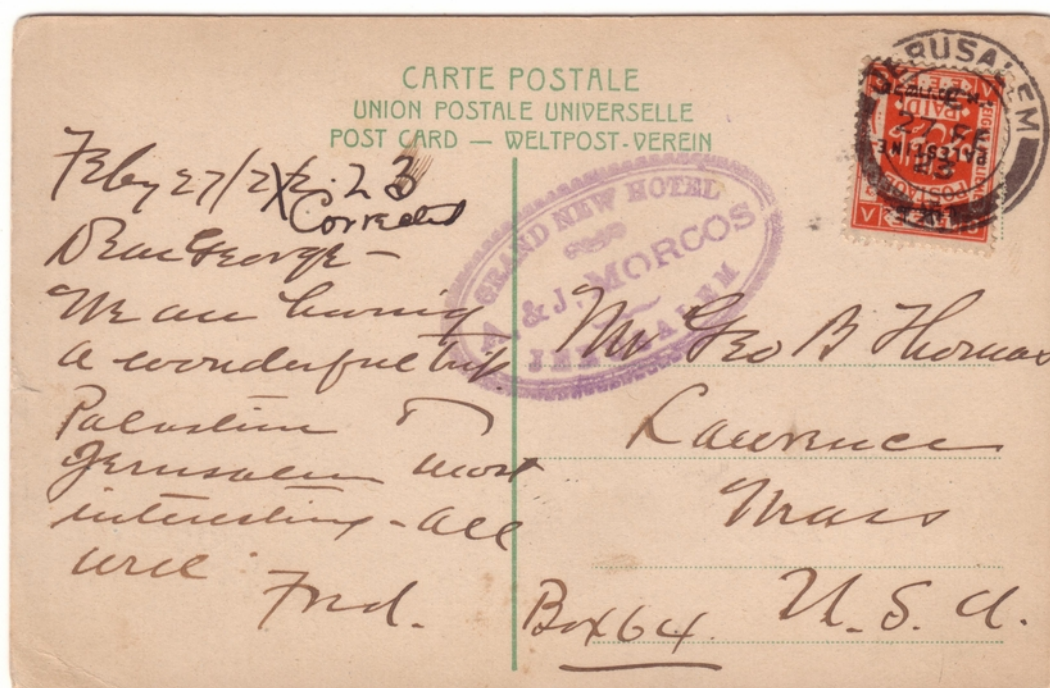 CARTE POSTALE
UNION POSTALE UNIVERSELLE
POST CARD — WELTPOST-VEREIN
JERUSALEM
27 FE
23
PAID
PALESTINE
GRAND NEW HOTEL
A. & J. MORCOS
JERUSALEM
Feby 27/ 23
Corrected
Dear George –
We are having
a wonderful trip
Palestine
Jerusalem most
interesting - all
well.
Fred.
Mr Geo B Thomas
Lawrence
Mass
U.S.A.
Box 64